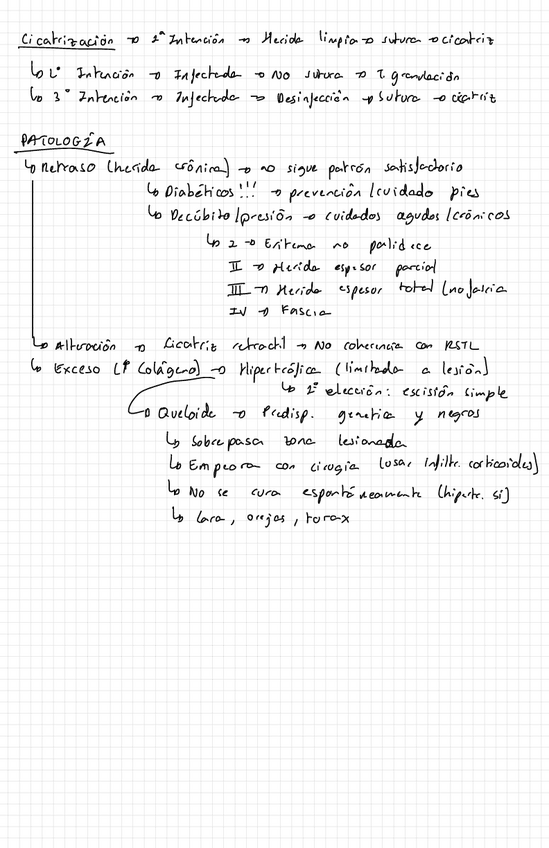 Cicatrización → 1ª Intención → Herida limpia → sutura → cicatriz
↳ 2ª Intención → Infectada → No sutura → T. granulación
↳ 3ª Intención → Infectada → Desinfección → Sutura → cicatriz
PATOLOGÍA
↳ Retraso (herida crónica) → no sigue patrón satisfactorio
↳ Diabéticos!!! → prevención/cuidado pies
↳ Decúbito/presión → cuidados agudos/crónicos
↳ I → Eritema no palidece
II → Herida espesor parcial
III → Herida espesor total (no fascia
IV → Fascia
↳ Alteración → Cicatriz retractil → No coherencia con RSTL
↳ Exceso (↑ Colágeno) → Hipertrófica (limitada a lesión)
↳ 1ª elección: escisión simple
↳ Queloide → Predisp. genética y negros
↳ Sobrepasa zona lesionada
↳ Empeora con cirugía (usar infiltr. corticoides)
↳ No se cura espontáneamente (hipertr. sí)
↳ Cara, orejas, torax